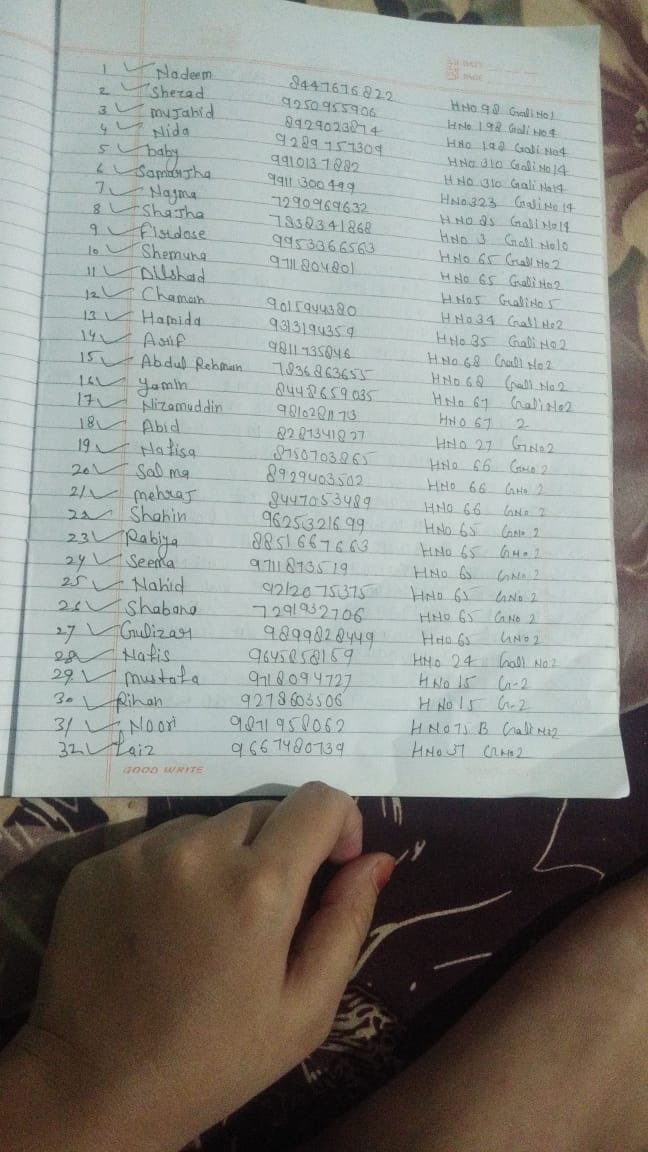 DATE
PAGE
1 ✓ Nadeem 8447676822 HNO 98 Gali No 1
2 ✓ Shezad 9250955906 HNO 198 Gali No 4
3 ✓ mujahid 8929023874 HNO 198 Gali No 4
4 ✓ Nida 9289757309 HNO 310 Gali No 14
5 ✓ baby 9910137882 HNO 310 Gali No 14
6 ✓ 9911300499 HNO 323 Gali No 14
7 ✓ Najma 7290969632 HNO 85 Gali No 14
8 ✓ Shajha 7838341868 HNO 3 Gali No 10
9 ✓ Firdose 9953366563 HNO 65 Gali No 2
10 ✓ Shemuna 9711804801 HNO 65 Gali No 2
11 ✓ Dilshad HNO 5 Gali No 5
12 ✓ Chaman 9015944380 HNO 34 Gali No 2
13 ✓ Hamida 9313194359 HNO 35 Gali No 2
14 ✓ Asif 9811735846 HNO 68 Gali No 2
15 ✓ Abdul Rehman 7836863655 HNO 68 Gali No 2
16 ✓ Yamin 8448659035 HNO 67 Gali No 2
17 ✓ Nizamuddin HNO 67 2
18 ✓ Abid 8287341827 HNO 27 G No 2
19 ✓ Nafisa 8750703865 HNO 66 G No 2
20 ✓ Salma 8929403502 HNO 66 G No 2
21 ✓ mehraj 8447053489 HNO 66 G No 2
22 ✓ Shahin 9625321699 HNO 65 G No 2
23 ✓ Rabiya 8851667663 HNO 65 G No 2
24 ✓ Seema 9711873519 HNO 65 G No 2
25 ✓ Nahid 9212075375 HNO 65 G No 2
26 ✓ Shabana 7291932706 HNO 65 G No 2
27 ✓ Gulizar 9899828449 HNO 65 G No 2
28 ✓ Nafis 9645858159 HNO 24 Gali No 2
29 ✓ mustafa 9718094727 HNO 15 G-2
30 ✓ Rihan 9278603506 HNO 15 G-2
31 ✓ Noori 9871958062 HNO 75 B Gali No 2
32 ✓ Faiz 9667480739 HNO 57 G No 2
GOOD WRITE